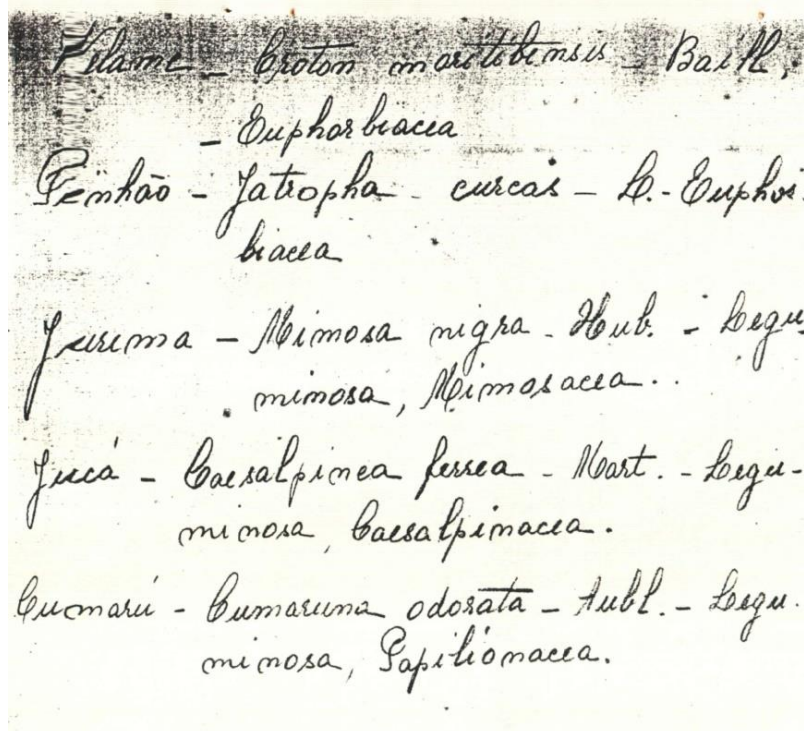 Velame - Croton moritibensis - Baill,
- Euphorbiacea
Penhão - Jatropha - curcas - L. - Euphor.
biacea
Jurema - Mimosa nigra - Hub. - Legu.
minosa, Mimosacea.
Jucá - Caesalpinea ferrea - Mart. - Legu-
minosa, Caesalpinacea.
Cumarú - Cumaruna odorata - Aubl. - Legu.
minosa, Papilionacea.